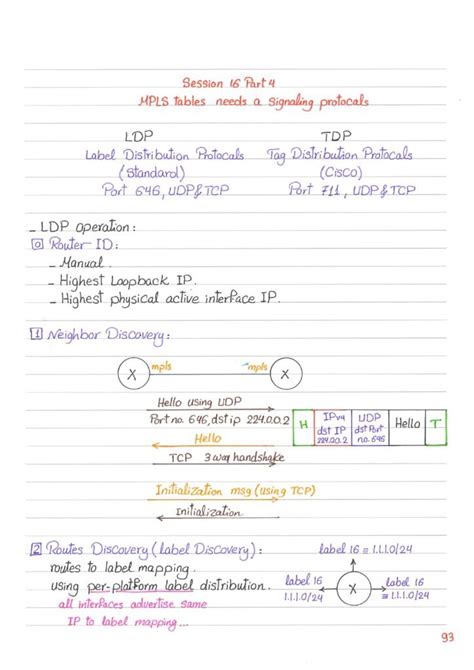 Session 16 Part 4
MPLS tables needs a signaling protocals
LDP
TDP
Label Distribution Protocals
Tag Distribution Protocals
(Standard)
(Cisco)
Port 646, UDP & TCP
Port 711, UDP & TCP
_ LDP operation:
0 Router ID:
_ Manual.
_ Highest Loopback IP.
_ Highest physical active interface IP.
1 Neighbor Discovery:
X mpls mpls X
Hello using UDP
Port no. 646, dst ip 224.0.0.2
Hello
TCP 3 way handshake
H
IPv4
dst IP
224.0.0.2
UDP
dst Port
no. 646
Hello
T
Initialization msg (using TCP)
Initialization
2 Routes Discovery (label Discovery):
routes to label mapping.
using per-platform label distribution.
all interfaces advertise same
IP to label mapping...
label 16 ≡ 1.1.1.0/24
label 16
1.1.1.0/24
X
label 16
1.1.1.0/24
93